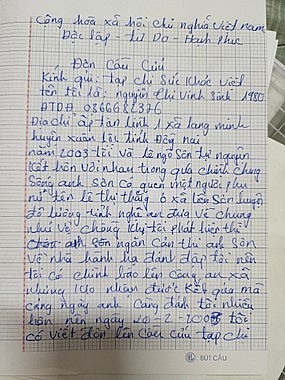 Cộng hòa xã hội chủ nghĩa Việt nam
Độc lập - tự Do - Hạnh Phúc
Đơn Cầu Cứu
Kính gửi: tạp chí Sức Khỏe Việt
tên tôi là: nguyễn thị Vinh Sinh 1980
ĐTDĐ 0366682326
Địa chỉ ấp tân tiến 1 xã lang minh
huyện xuân lộc tỉnh Đồng nai
năm 2003 tôi và lê ngọc Sơn tự nguyện
kết hôn với nhau trong quá trình chung
Sống anh Sơn có quen một người phụ
nữ tên lê thị thắng ở xã bên Sơn luyện
đồ lương tỉnh nghệ an đưa về chung
như vợ chồng khi tôi phát hiện thì
anh Sơn ngăn cản thì anh Sơn
về nhà hành hạ đánh đập tôi nên
tôi có trình báo lên công an xã
nhưng ko nhận được kết quả mà
càng ngày anh càng đánh tôi nhiều
hơn nên ngày 20-2- tôi
có viết đơn lên cầu cứu tạp chí
BÚT CẦU